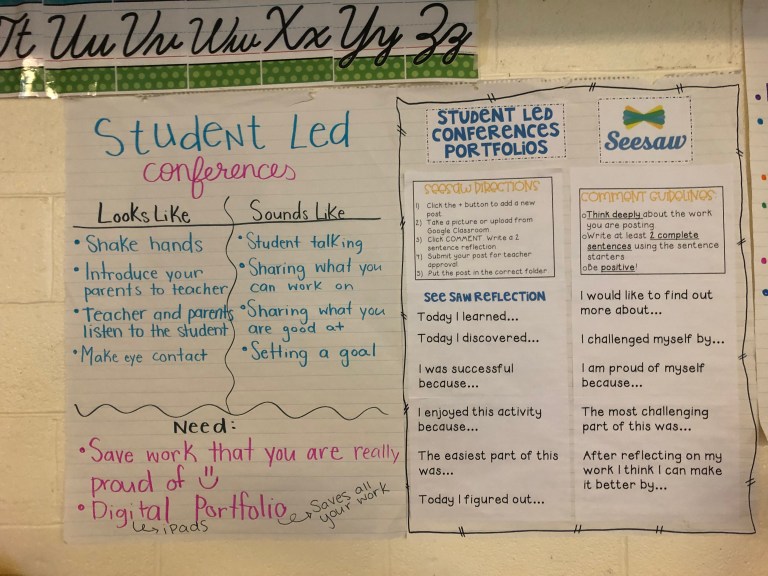 Tt Uu Vv Ww Xx Yy Zz
Student Led
conferences
Looks Like
• Shake hands
• Introduce your
parents to teacher
• Teacher and parents
listen to the student
• Make eye contact
Sounds Like
• Student talking
• Sharing what you
can work on
• Sharing what you
are good at
• Setting a goal
Need:
• Save work that you are really
proud of
• Digital Portfolio
iPads
Saves all
your work
STUDENT LED
CONFERENCES
PORTFOLIOS
Seesaw
SEESAW DIRECTIONS
1) Click the + button to add a new
post
2) Take a picture or upload from
Google Classroom
3) Click COMMENT Write a 2
sentence reflection
4) Submit your post for teacher
approval
5) Put the post in the correct folder
COMMENT GUIDELINES
oThink deeply about the work
you are posting
oWrite at least 2 complete
sentences using the sentence
starters
oBe positive!
SEE SAW REFLECTION
Today I learned...
Today I discovered...
I was successful
because...
I enjoyed this activity
because...
The easiest part of this
was...
Today I figured out...
I would like to find out
more about...
I challenged myself by...
I am proud of myself
because...
The most challenging
part of this was...
After reflecting on my
work I think I can make
it better by...